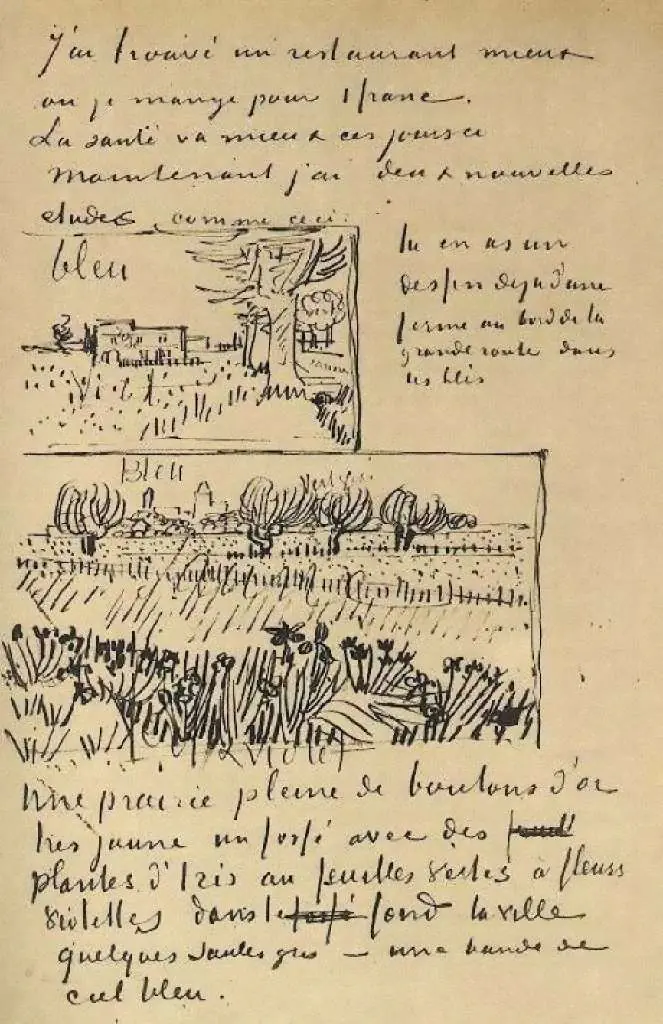 J'ai trouvé un restaurant mieux
ou je mange pour 1 franc.
La santé va mieux ces jours ci
Maintenant j'ai deux nouvelles
etudes comme ceci:
bleu
vert
vert
tu en as un
dessin deja d'une
ferme au bord de la
grande route dans
les blés
Bleu
violet
Une prairie pleine de boutons d'or
tres jaune un fossé avec des
plantes d'Iris au feuilles vertes à fleurs
violettes dans le fossé fond la ville
quelques saules gris – une bande de
ciel bleu.